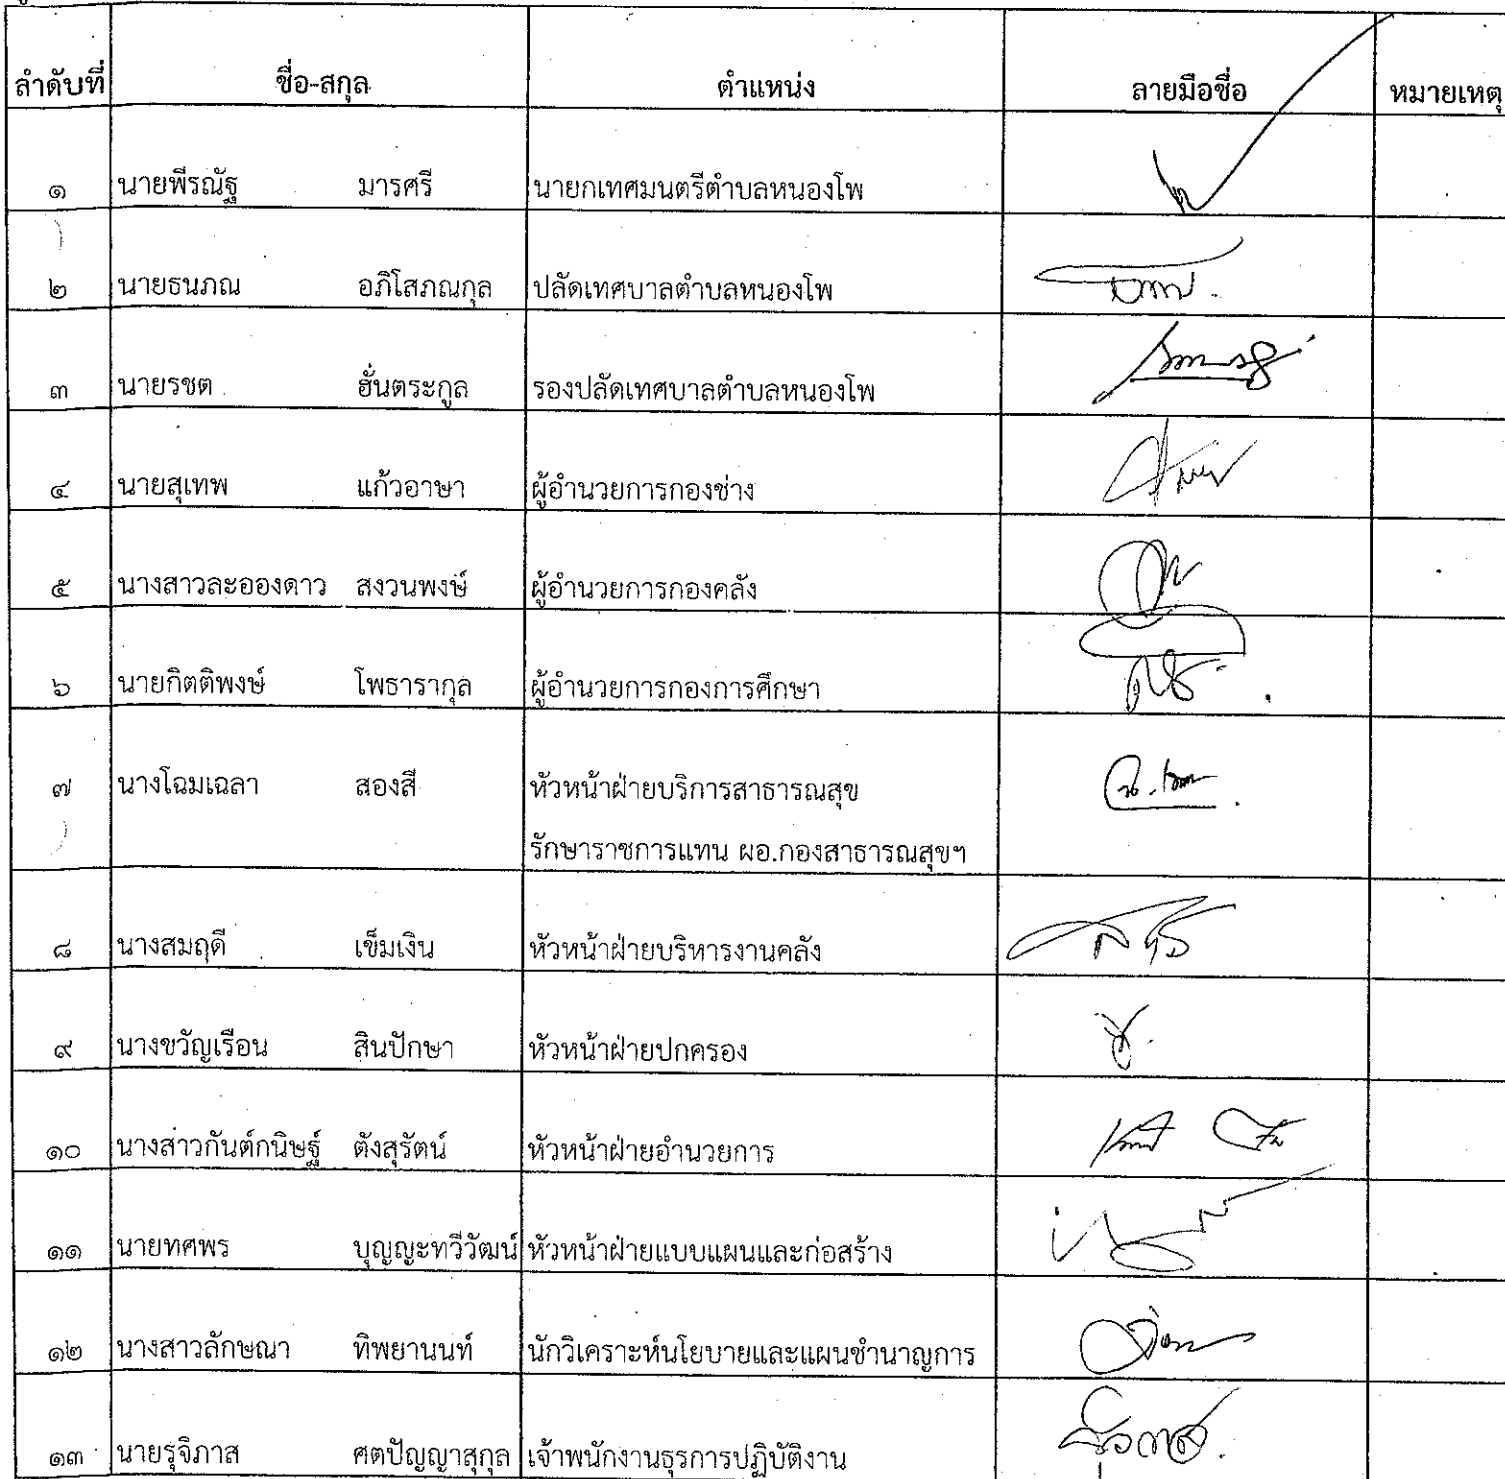 ลำดับที่ ชื่อ-สกุล ตำแหน่ง ลายมือชื่อ หมายเหตุ
๑ นายพีรณัฐ มารศรี นายกเทศมนตรีตำบลหนองโพ
๒ นายธนภณ อภิโสภณกุล ปลัดเทศบาลตำบลหนองโพ
๓ นายรชต ฮั่นตระกูล รองปลัดเทศบาลตำบลหนองโพ
๔ นายสุเทพ แก้วอาษา ผู้อำนวยการกองช่าง
๕ นางสาวละอองดาว สงวนพงษ์ ผู้อำนวยการกองคลัง
๖ นายกิตติพงษ์ โพธารากุล ผู้อำนวยการกองการศึกษา
๗ นางโฉมเฉลา สองสี หัวหน้าฝ่ายบริการสาธารณสุข
รักษาราชการแทน ผอ.กองสาธารณสุขฯ
๘ นางสมฤดี เข็มเงิน หัวหน้าฝ่ายบริหารงานคลัง
๙ นางขวัญเรือน สินปักษา หัวหน้าฝ่ายปกครอง
๑๐ นางสาวกันต์กนิษฐ์ ตังสุรัตน์ หัวหน้าฝ่ายอำนวยการ
๑๑ นายทศพร บุญญะทวีวัฒน์ หัวหน้าฝ่ายแบบแผนและก่อสร้าง
๑๒ นางสาวลักษณา ทิพยานนท์ นักวิเคราะห์นโยบายและแผนชำนาญการ
๑๓ นายรุจิภาส ศตปัญญาสุกุล เจ้าพนักงานธุรการปฏิบัติงาน